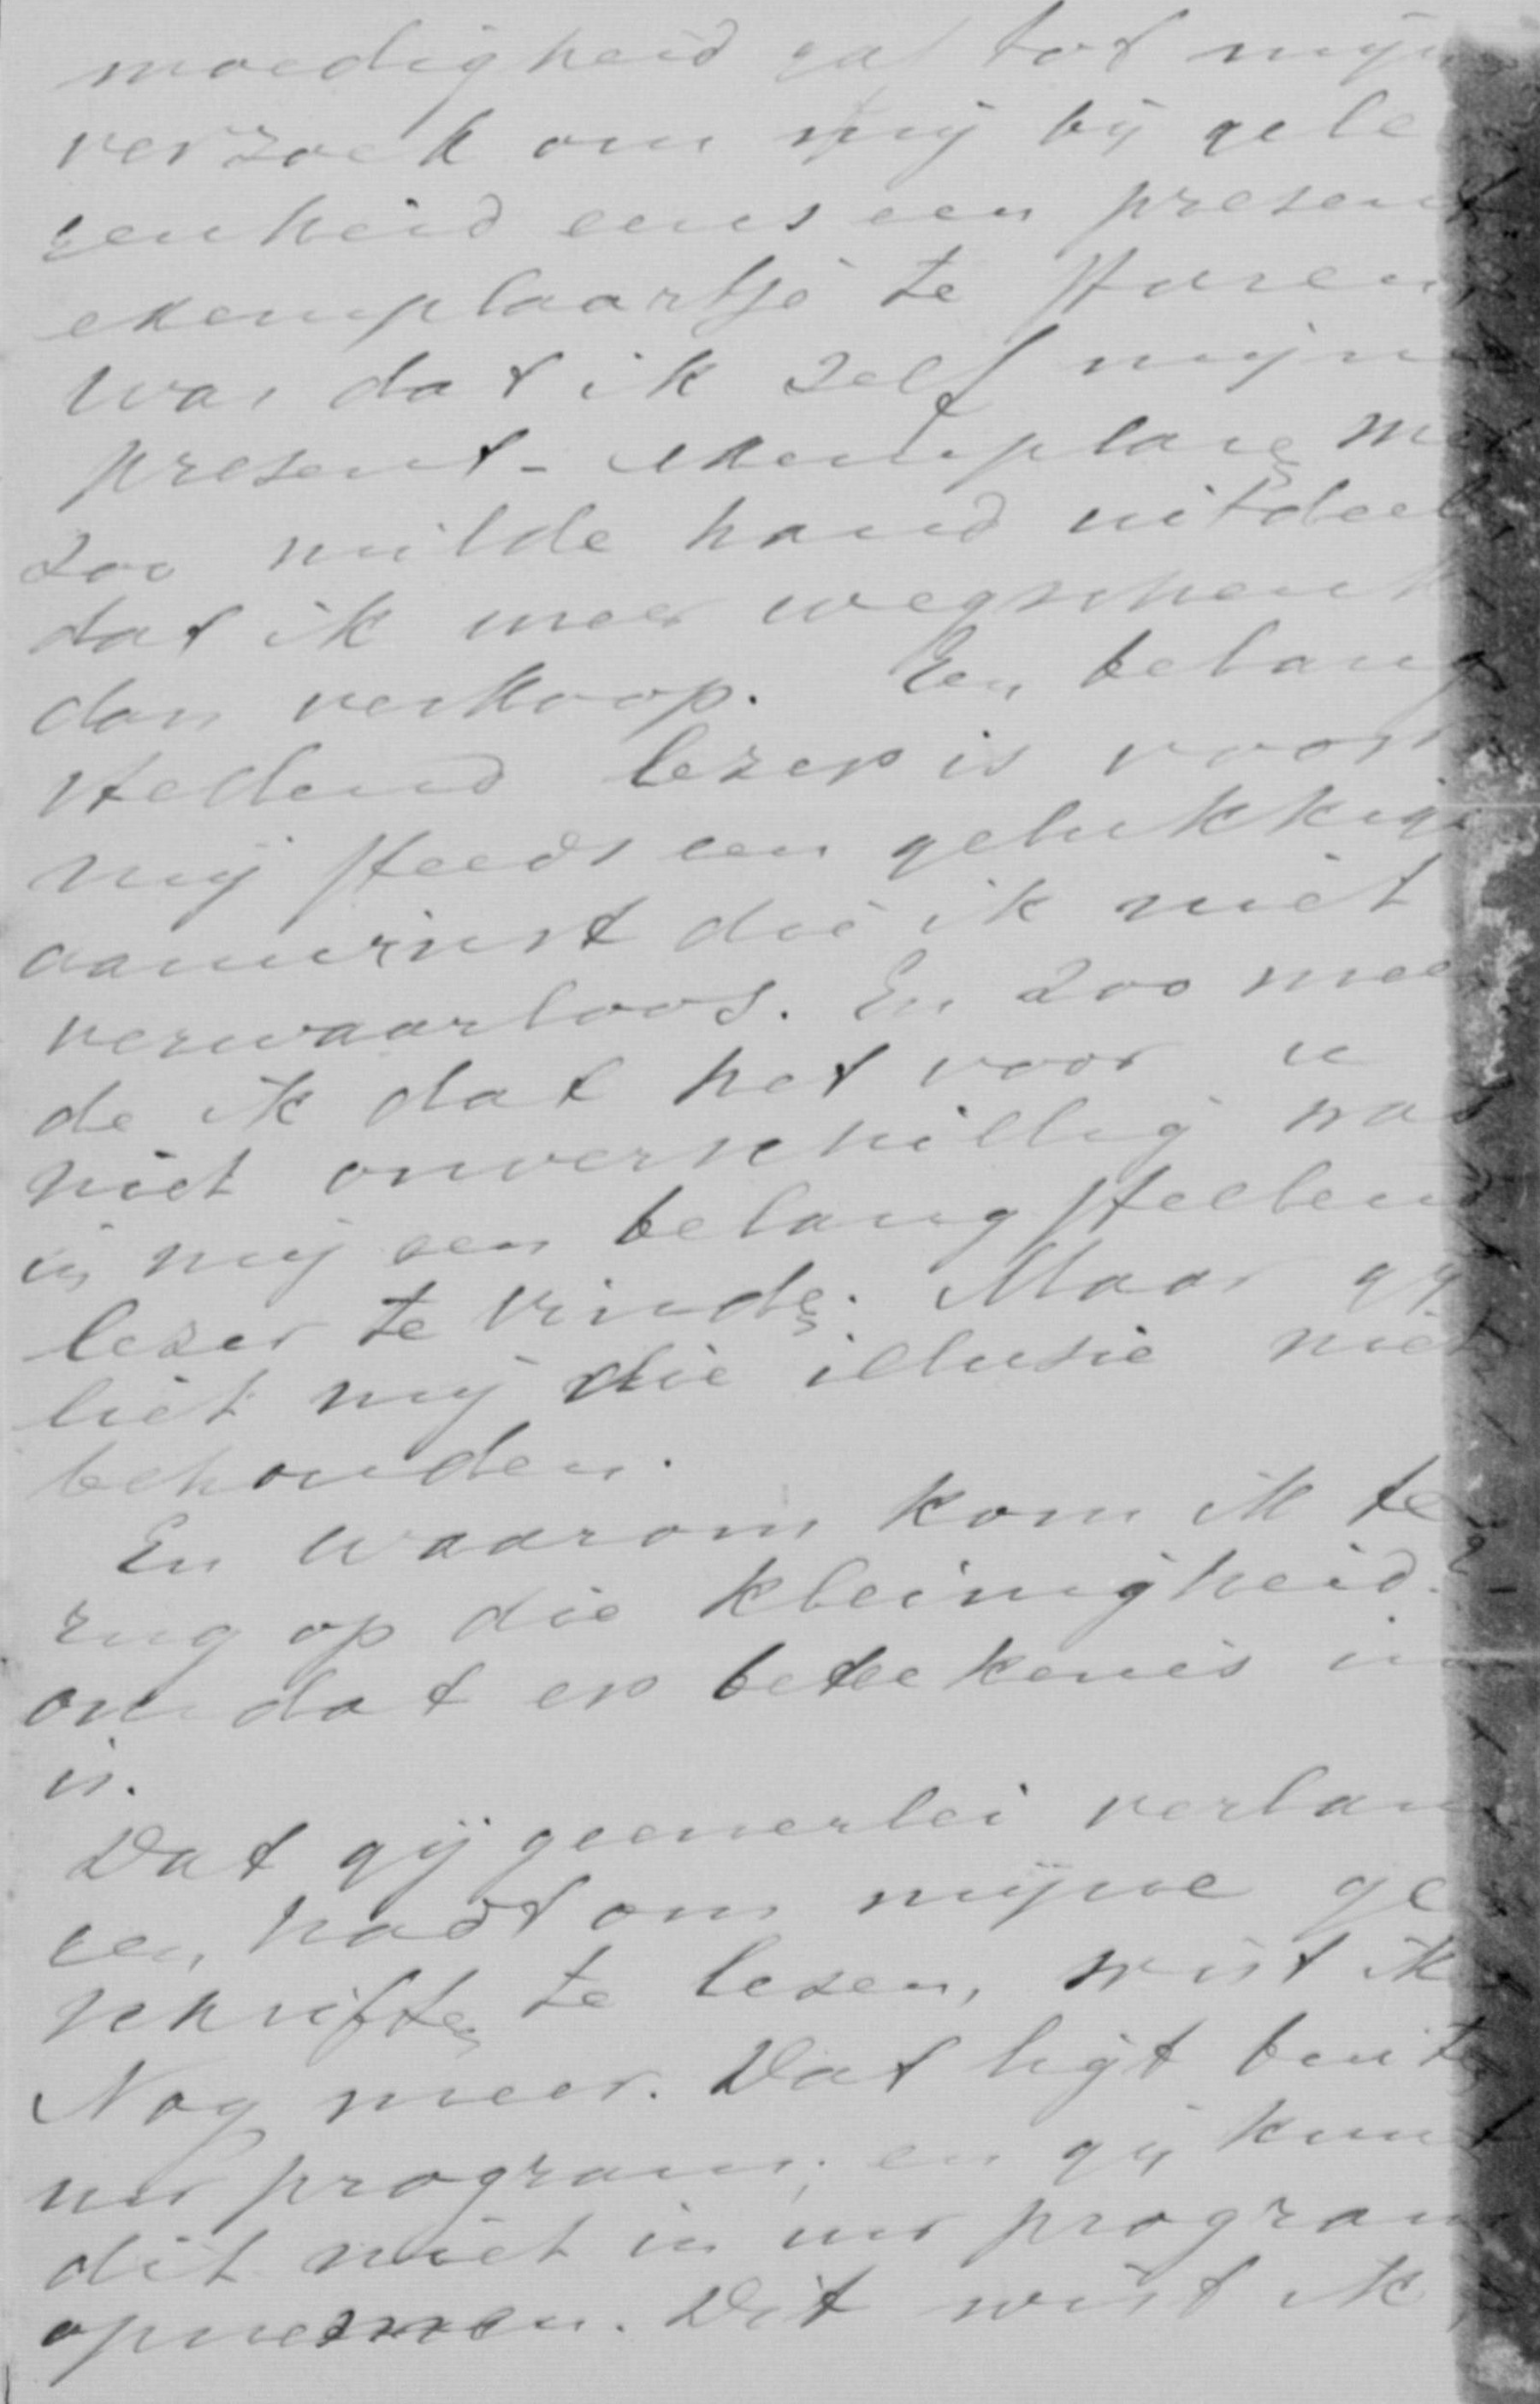 moedigheid gaf tot mijn
verzoek om mij bij gele
genheid eens een present
exemplaartje te sturen,
was dat ik zelf mijne
present-exemplaren met
zoo milde hand uitdeel,
dat ik meer wegschenk
dan verkoop. Een belang
stellend lezer is voor
mij steeds een gelukkige
aanwinst die ik niet
verwaarloos. En zoo meen
de ik dat het voor u
niet onverschillig was
in mij een belangstellend
lezer te vinden. Maar gij
liet mij die illusie niet
behouden.
En waarom kom ik te
rug op die kleinigheid?
omdat er beteekenis in
is.
Dat gij geenerlei verlan
gen hadt om mijne ge
schriften te lezen, wist ik
Nog meer. Dat ligt buiten
uw program; en gij kunt
dit niet in uw program
opnemen. Dit wist ik,